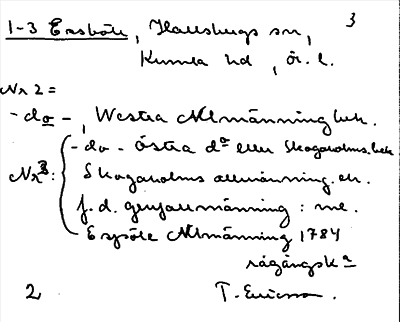 1-3 Ersböle, Hallsbergs sn, 3
Kumla hd, Ör. l.
Nr 2 =
- do -, Westra Allmänning bek.
- do - Östra do eller Skogaholms. bek
Nr 3: Skogaholms allmänning. ek.
f.d. allmänning: me.
Ersböle Allmänning 1784
rågångska
2 T. Ericsson.